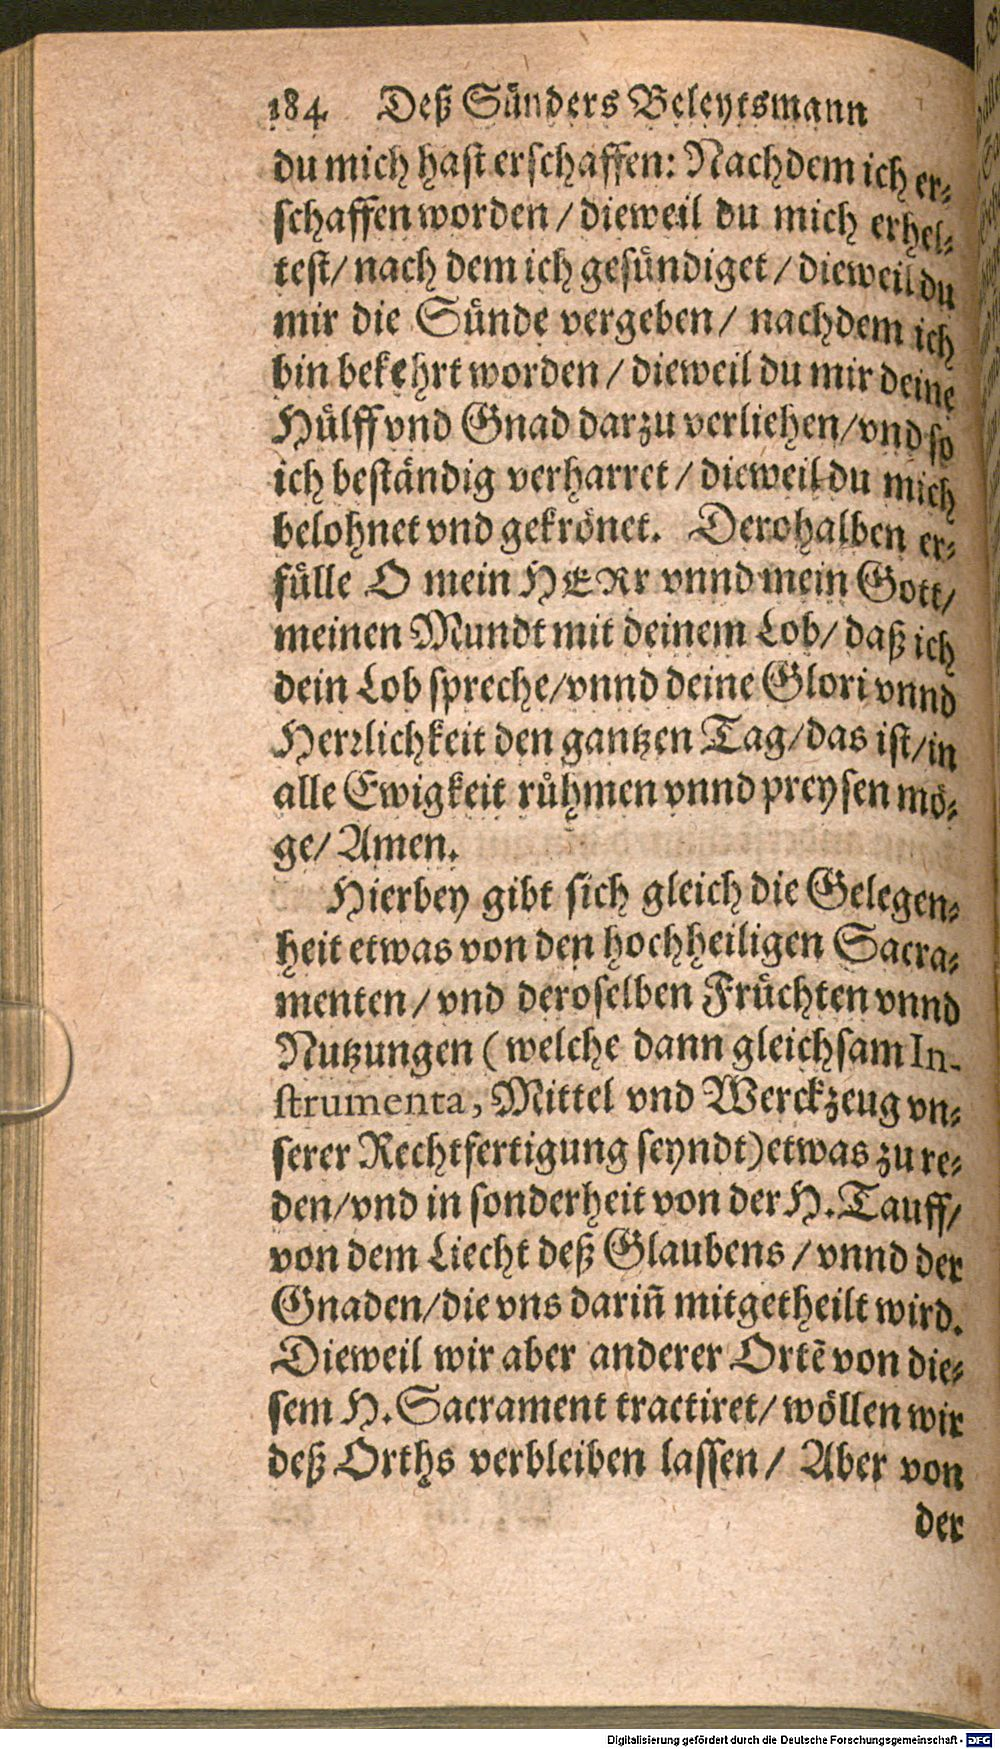 184 Deß Sünders Beleytsmann
du mich hast erschaffen: Nachdem ich er-
schaffen worden / dieweil du mich erhel-
test/ nach dem ich gesündiget / dieweil du
mir die Sünde vergeben/ nachdem ich
bin bekehrt worden / dieweil du mir deine
Hülff vnd Gnad darzu verliehen/vnd so
ich beständig verharret / dieweil du mich
belohnet vnd gekrönet. Derohalben er-
fülle O mein HERr vnnd mein Gott/
meinen Mundt mit deinem Lob/ daß ich
dein Lob spreche/vnnd deine Glori vnnd
Herrlichkeit den gantzen Tag/das ist/in
alle Ewigkeit rühmen vnnd preysen mö-
ge/ Amen.
Hierbey gibt sich gleich die Gelegen-
heit etwas von den hochheiligen Sacra-
menten/ vnd deroselben Früchten vnnd
Nutzungen ( welche dann gleichsam In-
strumenta, Mittel vnd Werckzeug vn-
serer Rechtfertigung seyndt) etwas zu re-
den/vnd in sonderheit von der H. Tauff/
von dem Liecht deß Glaubens / vnnd der
Gnaden/die vns dariñ mitgetheilt wird.
Dieweil wir aber anderer Ortẽ von die-
sem H. Sacrament tractiret/ wöllen wir
deß Orths verbleiben lassen/ Aber von
der
Digitalisierung gefördert durch die Deutsche Forschungsgemeinschaft - DFG